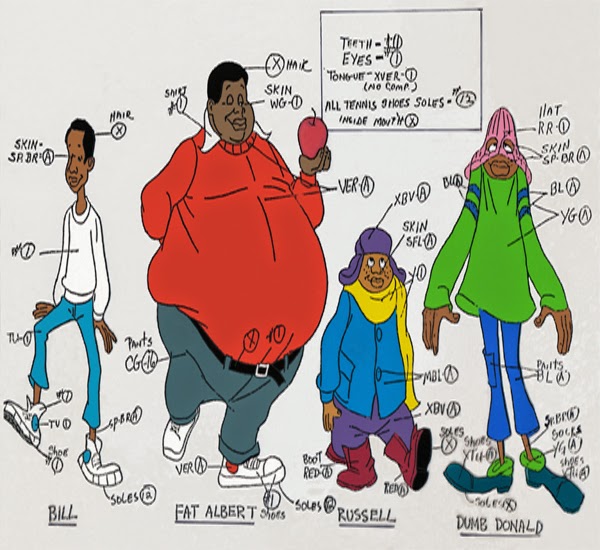 TEETH = #1
EYES = #1
TONGUE - XVER-1
(NO COMP)
ALL TENNIS SHOES SOLES = #12
INSIDE MOUTH X
HAIR
X
SKIN-
SP.BR-A
#1
TU-1
#1
TU 1
SHOE
#1
SP-BR A
SOLES 12
BILL
X HAIR
SHIRT
#1
SKIN
WG-1
VER-A
X #1
PANTS
CG-16
VER A
#1 SHOES
SOLES
FAT ALBERT
XBV-A
SKIN
SFL-A
Y-1
MBL A
XBV A
BOOT
RED-A
RED A
SOLES
X
RUSSELL
HAT
RR-1
SKIN
SP-BR A
BL A
BL A
YG A
PANTS
BL A
SP.BR A
SOCKS
YG A
SHOES
SHOES
SOLES X
DUMB DONALD